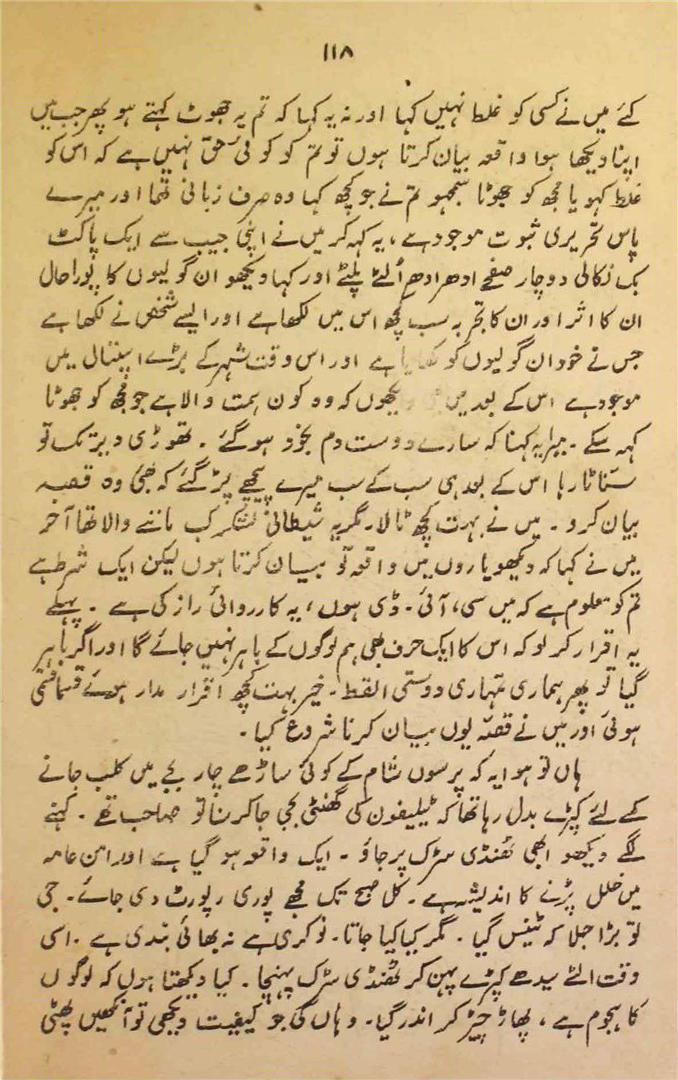 ۱۱۸
کئے میں نے کسی کو غلط نہیں کہا اور نہ یہ کہا کہ تم یہ جھوٹ کہتے ہو پھر جب میں
اپنا دیکھا ہوا واقعہ بیان کرتا ہوں تو تم کو کوئی حق نہیں ہے کہ اس کو
غلط کہو یا مجھ کو جھوٹا سمجھو تم نے جو کچھ کہا وہ صرف زبانی تھا اور میرے
پاس تحریری ثبوت موجود ہے، یہ کہہ کر میں نے اپنی جیب سے ایک پاکٹ
بک نکالی دو چار صفحے ادھر ادھر اُلٹے پلٹے اور کہا دیکھو ان گولیوں کا پورا حال
ان کا اثر اور ان کا تجربہ سب کچھ اس میں لکھا ہے اور ایسے شخص نے لکھا ہے
جس نے خود ان گولیوں کو کھایا ہے اور اس وقت شہر کے بڑے اسپتال میں
موجود ہے اس کے بعد میں دیکھوں کہ وہ کون ہمت والا ہے جو مجھ کو جھوٹا
کہہ سکے۔ میرا یہ کہنا کہ سارے دوست دم بخود ہو گئے۔ تھوڑی دیر تک تو
سناٹا رہا اس کے بعد ہی سب کے سب میرے پیچھے پڑ گئے کہ بھئی وہ قصہ
بیان کرو۔ میں نے بہت کچھ ٹالا۔ مگر یہ شیطانی لشکر کب ماننے والا تھا آخر
میں نے کہا کہ دیکھو یاروں میں واقعہ تو بیان کرتا ہوں لیکن ایک شرط ہے
تم کو معلوم ہے کہ میں سی، آئی۔ ڈی ہوں، یہ کارروائی راز کی ہے۔ پہلے
یہ اقرار کر لو کہ اس کا ایک حرف بھی ہم لوگوں کے باہر نہیں جائے گا اور اگر باہر
گیا تو پھر ہماری تمہاری دوستی القط۔ خیر بہت کچھ اقرار مدار ہوئے قسما قسمی
ہوئی اور میں نے قصّہ یوں بیان کرنا شروع کیا۔
ہاں تو ہوا یہ کہ پرسوں شام کے کوئی ساڑھے چار بجے میں کلب جانے
کے لئے کپڑے بدل رہا تھا کہ ٹیلیفون کی گھنٹی بجی جا کر سنا تو صاحب تھے۔ کہنے
لگے دیکھو ابھی ٹھنڈی سڑک پر جاؤ۔ ایک واقعہ ہو گیا ہے اور امن عامہ
میں خلل پڑنے کا اندیشہ ہے۔ کل صبح تک مجھے پوری رپورٹ دی جائے۔ جی
تو بڑا جلا کہ ٹینس گیا۔ مگر کیا کیا جاتا۔ نوکری ہے نہ بھائی بندی ہے۔ اسی
وقت الٹے سیدھے کپڑے پہن کر ٹھنڈی سڑک پہنچا۔ کیا دیکھتا ہوں کہ لوگوں
کا ہجوم ہے، پھاڑ چیڑ کر اندر گیا۔ وہاں کی جو کیفیت دیکھی تو آنکھیں پھٹی